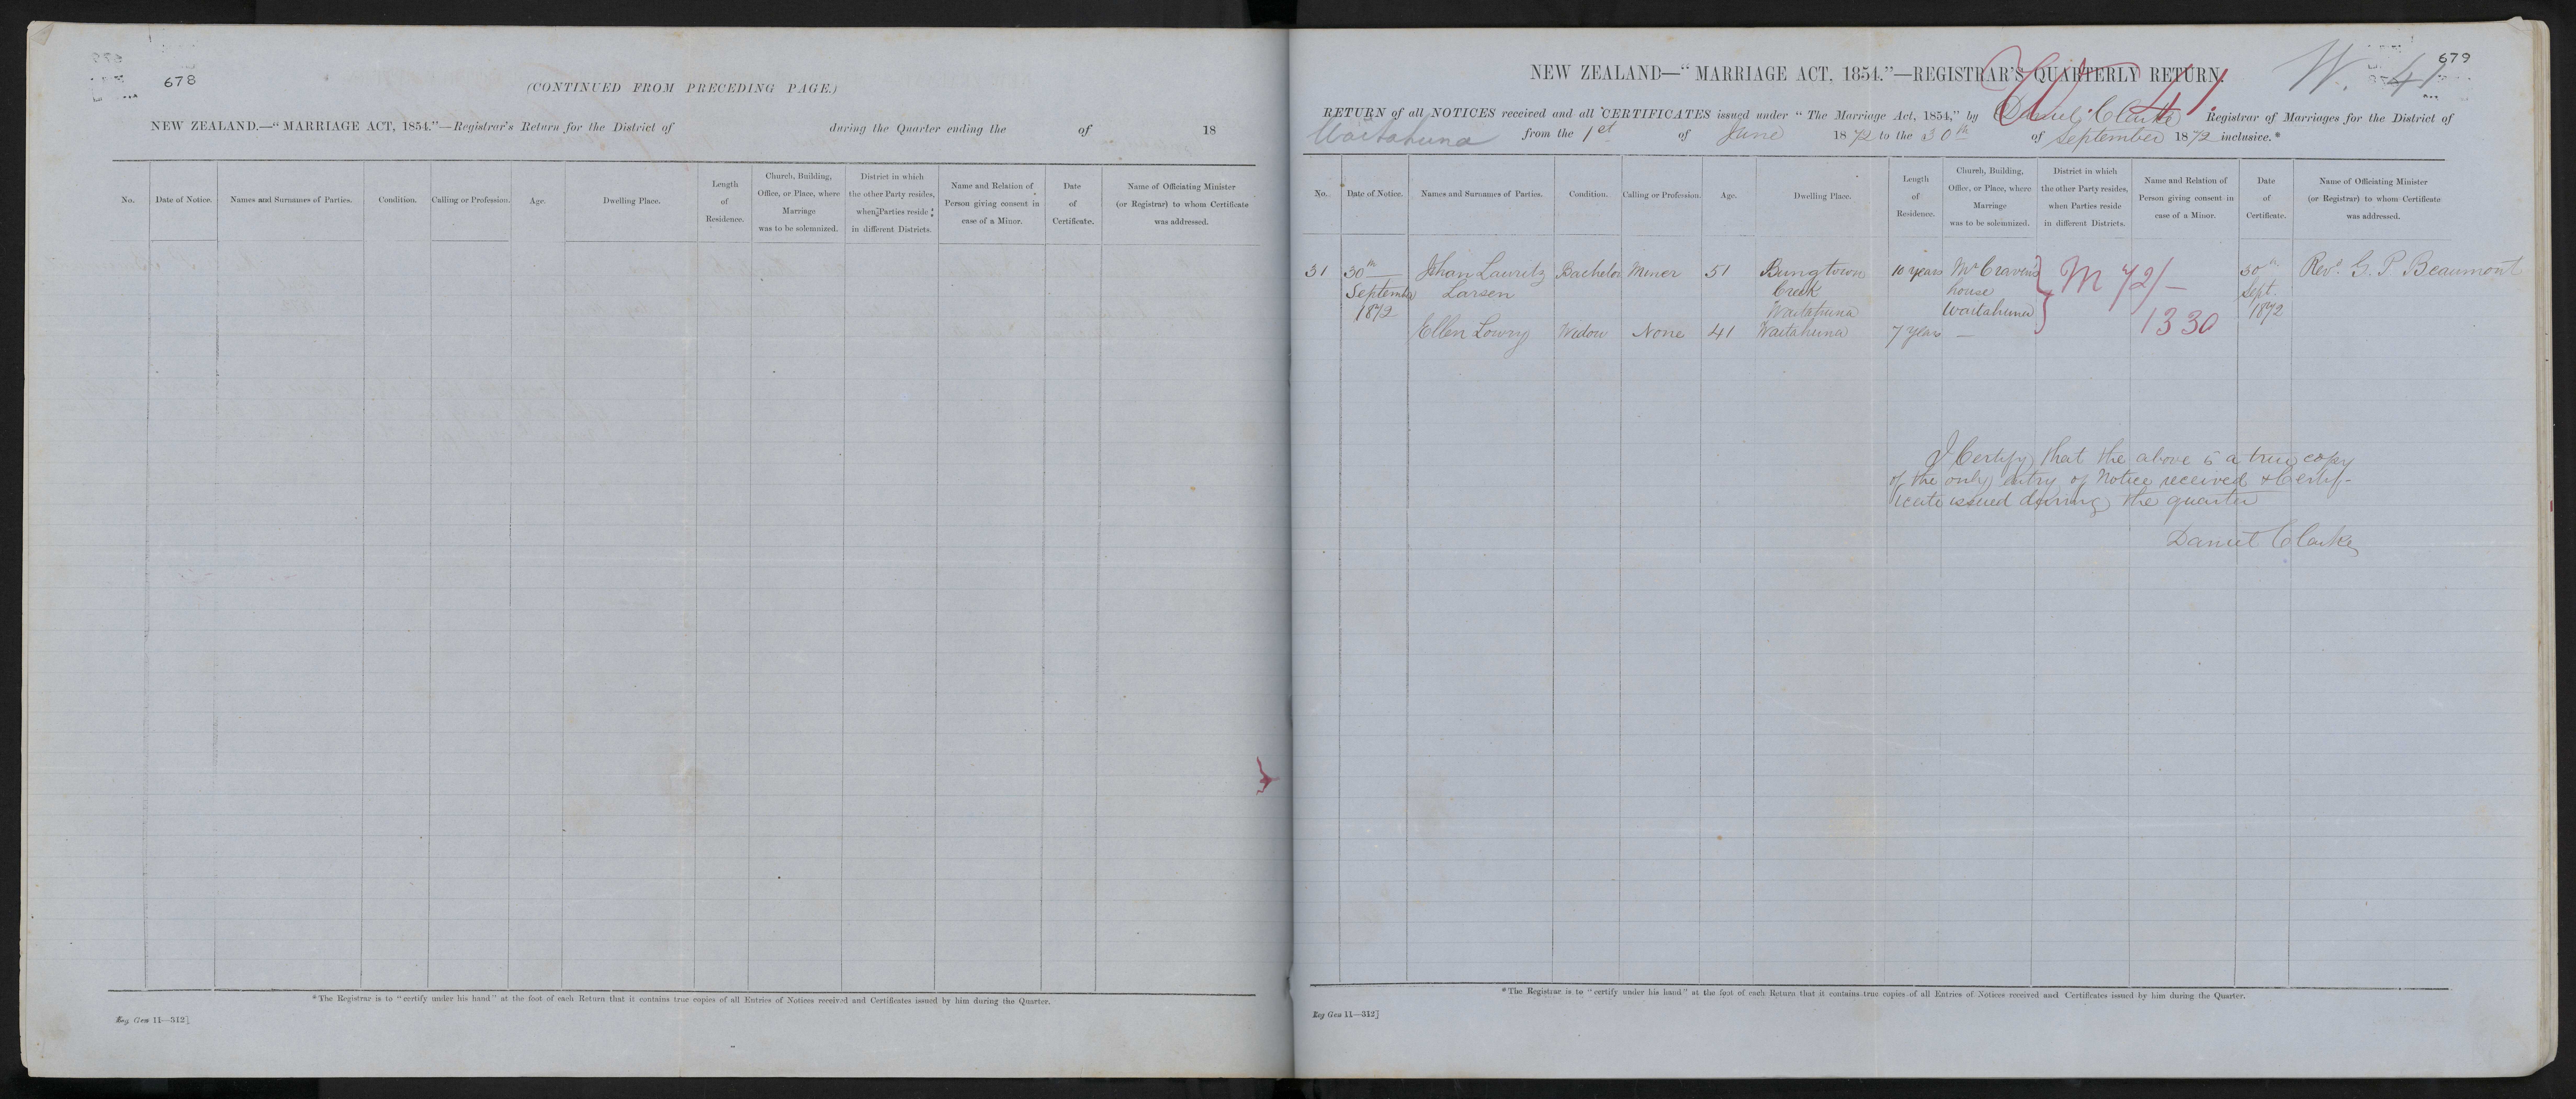 678
(CONTINUED FROM PRECEDING PAGE.)
NEW ZEALAND.—"MARRIAGE ACT, 1854."—Registrar's Return for the District of during the Quarter ending the of 18
No. Date of Notice. Names and Surnames of Parties. Condition. Calling or Profession. Age. Dwelling Place. Length of Residence. Church, Building, Office, or Place, where Marriage was to be solemnized. District in which the other Party resides, when Parties reside in different Districts. Name and Relation of Person giving consent in case of a Minor. Date of Certificate. Name of Officiating Minister (or Registrar) to whom Certificate was addressed.
*The Registrar is to "certify under his hand" at the foot of each Return that it contains true copies of all Entries of Notices received and Certificates issued by him during the Quarter.
Reg Gen 11—312]
679
W. 41
W 41
NEW ZEALAND—"MARRIAGE ACT, 1854."—REGISTRAR'S QUARTERLY RETURN.
RETURN of all NOTICES received and all CERTIFICATES issued under "The Marriage Act, 1854," by Daniel Clarke Registrar of Marriages for the District of
Waitahuna from the 1st of June 1872 to the 30th of September 1872 inclusive.*
No. Date of Notice. Names and Surnames of Parties. Condition. Calling or Profession. Age. Dwelling Place. Length of Residence. Church, Building, Office, or Place, where Marriage was to be solemnized. District in which the other Party resides, when Parties reside in different Districts. Name and Relation of Person giving consent in case of a Minor. Date of Certificate. Name of Officiating Minister (or Registrar) to whom Certificate was addressed.
31 30th Johan Lauritz Bachelor Miner 51 Bungtown 10 years Mr Craven's M 72/— 30th Revd. G. P Beaumont
September Larsen Creek house Sept.
1872 Waitahuna Waitahuna 1330 1872
Ellen Lowry Widow None 41 Waitahuna 7 years —
I Certify that the above is a true copy
of the only entry of Notice received & Certif-
icate issued during the quarter
Daniel Clarke
*The Registrar is to "certify under his hand" at the foot of each Return that it contains true copies of all Entries of Notices received and Certificates issued by him during the Quarter.
Reg Gen 11—312]